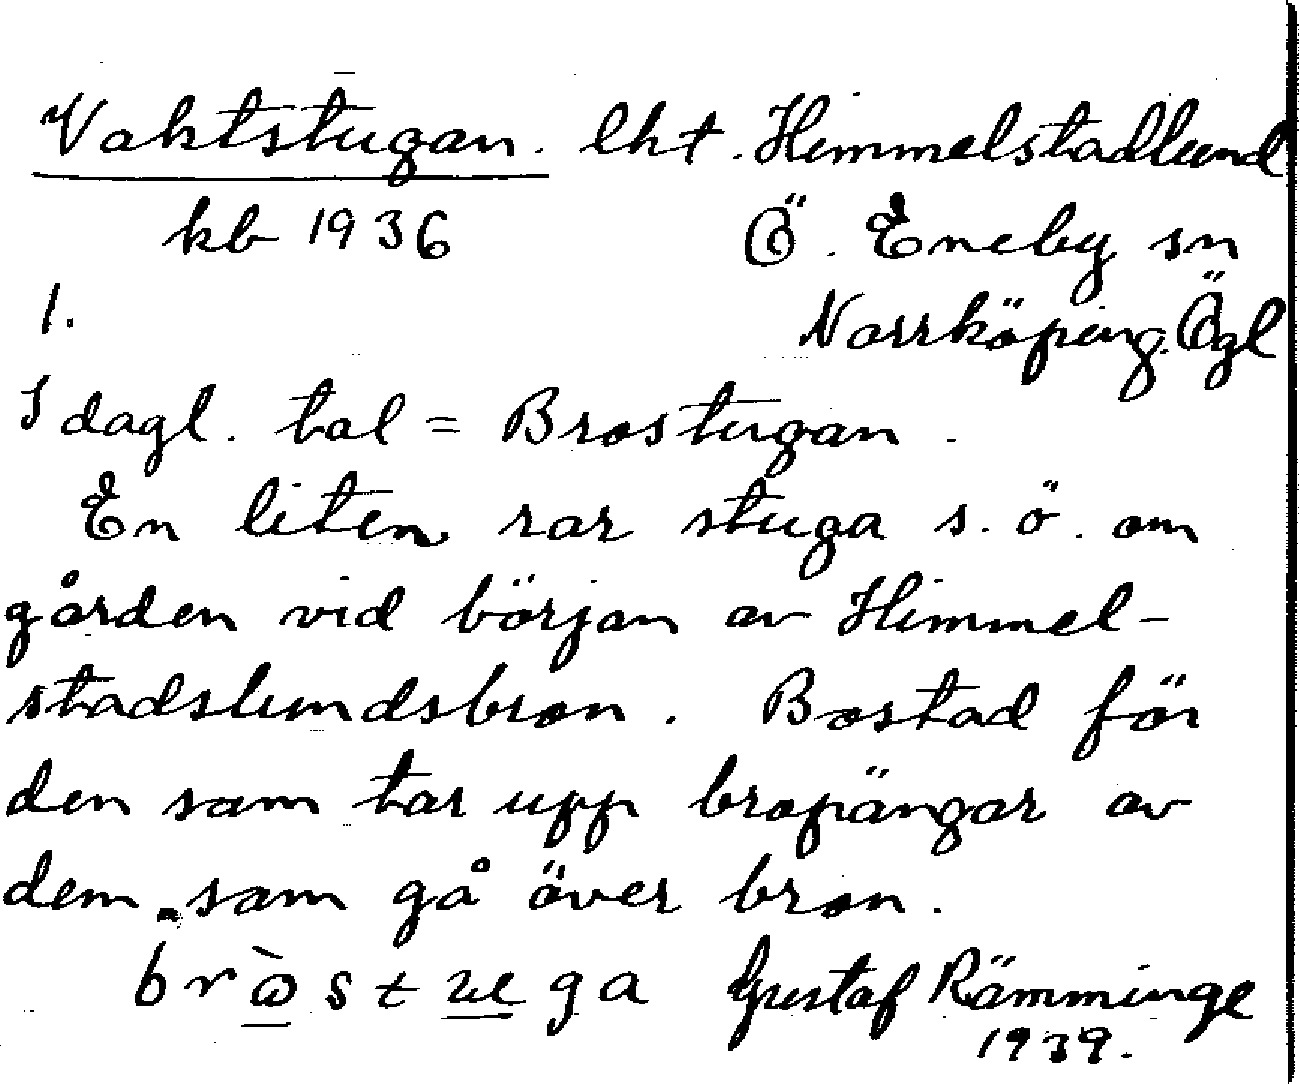 Vaktstugan. lht. Himmelstadlund
kb 1936 Ö. Eneby sn
1. Norrköping. Ögl
I dagl. tal = Brostugan.
En liten rar stuga s. ö. om
gården vid början av Himmel-
stadslundsbron. Bostad för
den som tar upp bropängar av
dem som gå över bron.
Gustaf Rämminge
1939.